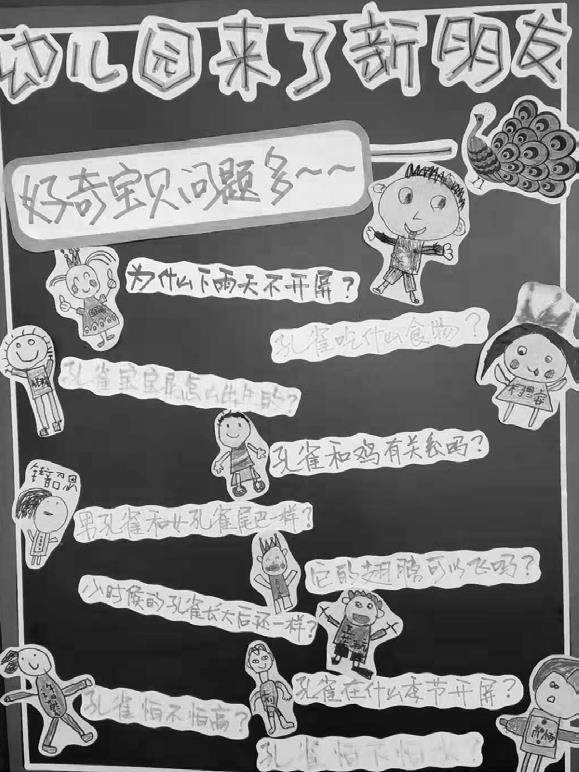 幼儿园来了新朋友
好奇宝贝问题多~~
为什么下雨天不开屏？
孔雀吃什么食物？
孔雀宝宝是怎么出生的？
孔雀和鸡有关系吗？
男孔雀和女孔雀尾巴一样？
它的翅膀可以飞吗？
小时候的孔雀长大后还一样？
孔雀在什么季节开屏？
孔雀怕不怕高？
孔雀怕不怕水？